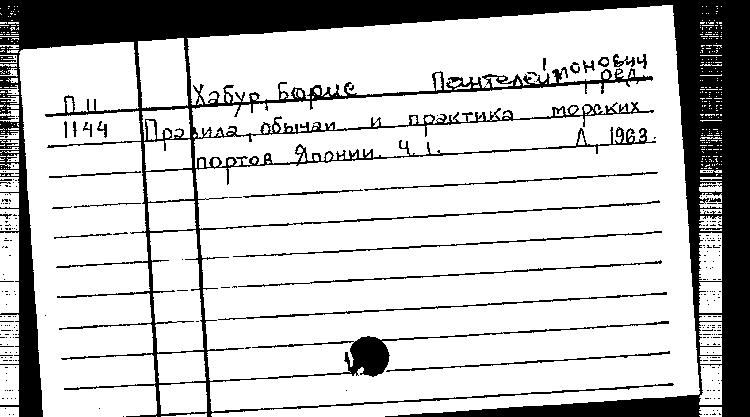 П II Хабур, Борис Пантелеймонович, ред.
1144 Правила, обычаи и практика морских
портов Японии. Ч. 1. Л., 1963.